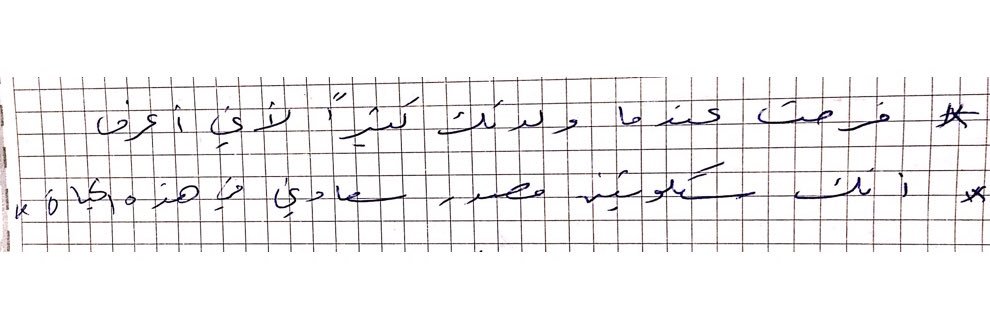 * فرحت عندما ولدتك كثيراً لأني أعرف
* أنك ستكونين مصدر سعادتي في هذه الحياة *